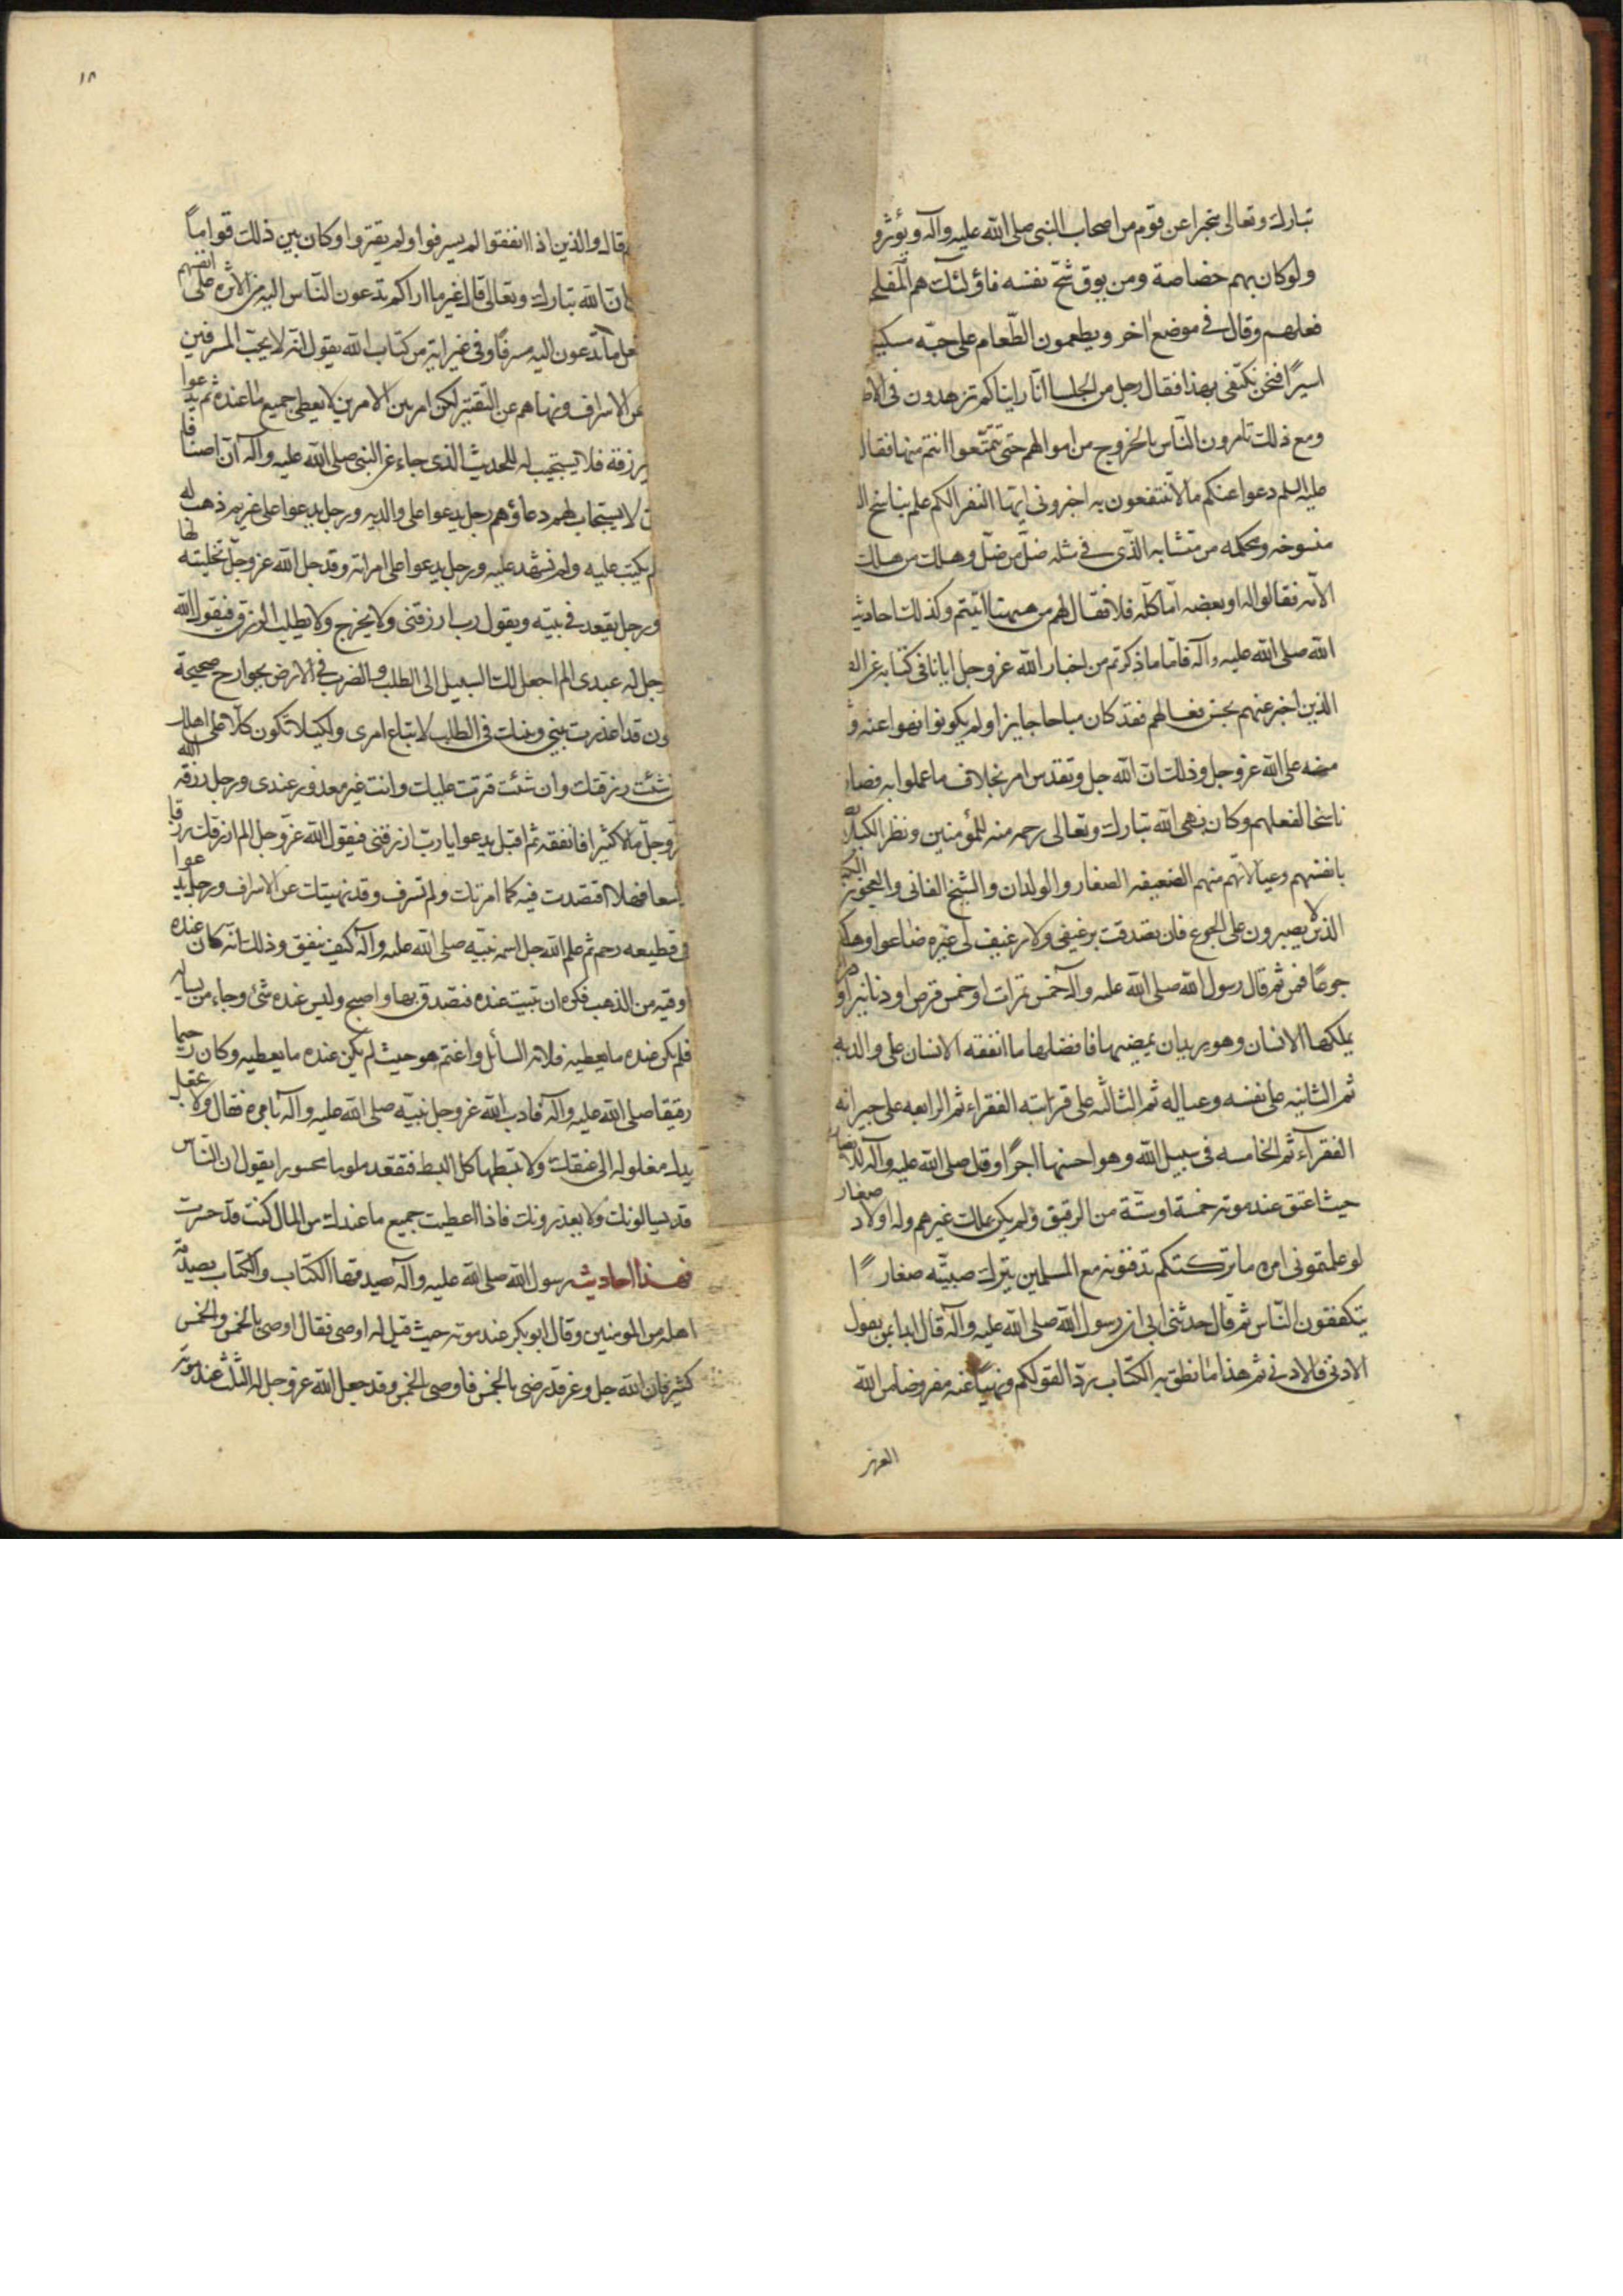 تبارك وتعالى مخبرا عن قوم من اصحاب النبى صلى الله عليه وآله ويؤثرو
ولو كان بهم خصاصة ومن يوق شحّ نفسه فاؤلئك هم المفلح
فعلهم وقال فى موضع اخر ويطعمون الطّعام على حبّه مسكي
اسيرًا فنحن نكتفى بهذا فقال رجل من الجلسا انّا رايناكم تزهدون فى الاط
ومع ذلك تامرون النّاس بالخروج من اموالهم حتى تتمتّعوا انتم منها فقال
عليه السلم دعوا عنكم ما لا تنتفعون به اخبرونى ايها النفر الكم علم بناسخ ال
منسوخه ومحكمه من متشابهه الّذى فى مثله ضلّ من ضلّ وهلك من هلك
الامّه فقالوا له او بعضه امّا كلّه فلا فقال لهم من هيهنا اتيتم وكذلك احاديث
الله صلى الله عليه وآله فامّا ما ذكرتم من اخبار الله عزوجل ايانا فى كتابه عن ال
الذين اخبر عنهم بحسن فعالهم فقد كان مباحا جايزا ولم يكونوا نهوا عنه و
منه على الله عزوجل وذلك انّ الله جل وتقدس امر بخلاف ما عملوا به فصار
ناسخا لفعلهم وكان نهى الله تبارك وتعالى رحمه منه للمؤمنين ونظرا لكيلا
بانفسهم وعيالاتهم منهم الضعيفه الصغار والولدان والشيخ الفانى والعجوز الكبي
الذين لا يصبرون على الجوع فان تصدقت برغيفى ولا رغيف لى غيره ضاعوا وهلكو
جوعًا فمن ثم قال رسول الله صلى الله عليه وآله خمس تمرات او خمس قرص او دنانير او
يملكها الانسان وهو يريد ان يمضيها فافضلها ما انفقه الانسان على والديه
ثم الثانيه على نفسه وعياله ثم الثالثه على قرابته الفقراء ثم الرابعه على جيرانه
الفقرآء ثم الخامسه فى سبيل الله وهو احسنها اجرًا وقال صلى الله عليه وآله للانصار
حيث اعتق عند موته خمسة او ستّة من الرقيق ولم يكن يملك غيرهم وله اولاد صغار
لو علمتمونى امره ما تركتكم تدفنونه مع المسلمين يترك صبيّه صغارًا
يتكففون النّاس ثم قال حدثنى ابى ان رسول الله صلى الله عليه وآله قال ابدا بمن يعول
الادنى فالادنى ثم هذا ما نطق به الكتاب ردّا لقولكم ونهيًا عنه مفروضا من الله
العزيز
١٨
قال والذين اذا انفقوا لم يسرفوا ولم يقتروا وكان بين ذلك قوامًا
ان الله تبارك وتعالى قال غير ما اراكم تدعون النّاس اليه من الاثره على انفسهم
فعل ما تدعون اليه مسرفًا وفى غير ايه من كتاب الله يقول انه لا يحبّ المسرفين
عن الاسراف ونهاهم عن التقتير لكن امر بين الامرين لا يعطى جميع ما عنده ثم يدعوا
يرزقه فلا يستجيب له للحديث الذى جاء عن النبى صلى الله عليه وآله انّ اصنافا
لا يستجاب لهم دعاؤهم رجل يدعوا على والديه ورجل يدعوا على غريم ذهب له
لم يكتب عليه ولم يشهد عليه ورجل يدعوا على امراته وقد جعل الله عزوجلّ تخليته لها
ورجل يقعد فى بيته ويقول رب ارزقنى ولا يخرج ولا يطلب الرزق فيقول الله
جل له عبدى الم اجعل لك السبيل الى الطلب والضرب فى الارض بجوارح صحيحة
ون قد اعذرت بينى وبينك فى الطلب لاتباع امرى ولكيلا تكون كلّا على اهلك
شئت رزقتك وان شئت قترت عليك وانت غير معذور عندى ورجل رزقه الله
زوجلّ مالا كثيرا فانفقه ثم اقبل يدعوا يا ربّ ارزقنى فيقول الله عزوجل الم ارزقك رزقا
اسعا فهلا اقتصدت فيه كما امرتك ولم تسرف وقد نهيتك عن الاسراف ورجل يدعوا
فى قطيعه رحم ثم علم الله جل اسمه نبيّه صلى الله عليه وآله كيف ينفق وذلك انّه كان عنده
اوقيه من الذهب فكره ان تبيت عنده فتصدق بها واصبح وليس عنده شئ وجاء من يساله
فلم يكن عنده ما يعطيه فلامه السائل واغتم هو حيث لم يكن عنده ما يعطيه وكان رحيما
رقيقا صلى الله عليه وآله فادب الله عزوجل نبيّه صلى الله عليه وآله بامره فقال ولا تجعل
يدك مغلوله الى عنقك ولا تبسطها كل البسط فتقعد ملوما محسورا يقول ان النّاس
قد يسالونك ولا يعذرونك فاذا اعطيت جميع ما عندك من المال كنت قد حسرت
فهذا احاديث رسول الله صلى الله عليه وآله يصدقها الكتاب والكتاب يصدقه
اهله من المومنين وقال ابو بكر عند موته حيث قيل له اوصى فقال اوصى بالخمس والخمس
كثير فان الله جل وعز قد رضى بالخمس فاوصى بالخمس وقد جعل الله عزوجل له الثلث عند موته